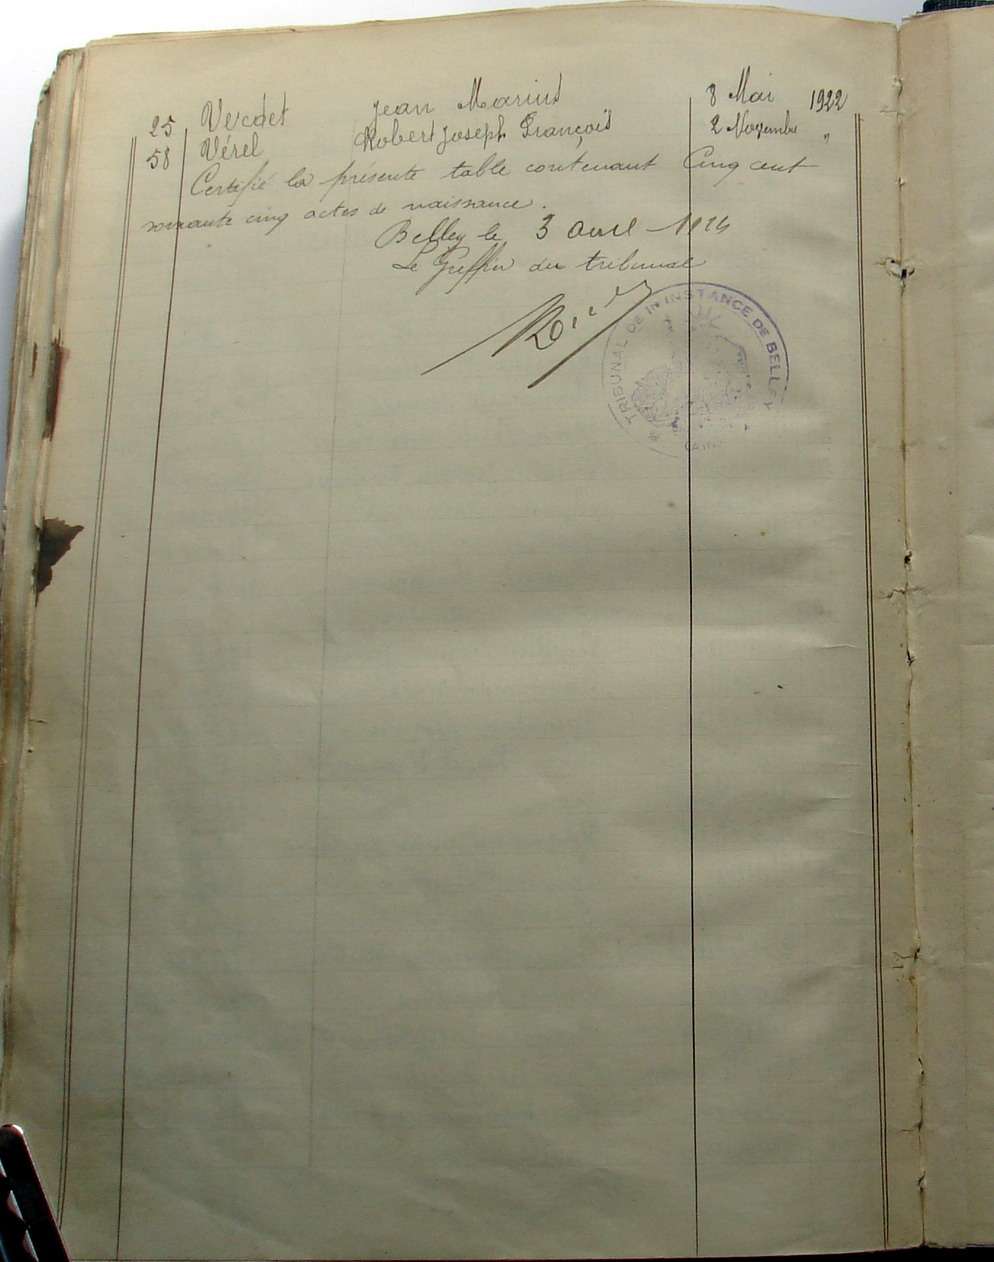 25 Verdet Jean Marius 8 Mai 1922
58 Vérel Robert Joseph François 2 Novembre "
Certifié la présente table contenant Cinq cent
soixante cinq actes de naissance.
Belley le 3 avril 1924
Le Greffier du tribunal
TRIBUNAL DE 1ère INSTANCE DE BELLEY